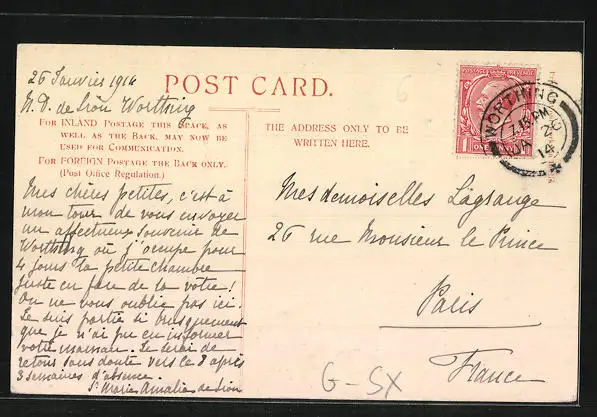 26 Janvier 1914
N. D. de Sion Worthing
POST CARD.
FOR INLAND POSTAGE THIS SPACE, AS
WELL AS THE BACK, MAY NOW BE
USED FOR COMMUNICATION.
FOR FOREIGN POSTAGE THE BACK ONLY.
(Post Office Regulation.)
THE ADDRESS ONLY TO BE
WRITTEN HERE.
Mes chères petites, c'est à
mon tour de vous envoyer
un affectueux souvenir de
Worthing où j'occupe pour
4 jours la petite chambre
juste en face de la vôtre!
On ne vous oublie pas ici.
Je suis partie si brusquement
que je n'ai pu en informer
votre maman. Je serai de
retour sans doute vers le 8 après
3 semaines d'absence.
Sr Marie Amalia de Sion
Mesdemoiselles Lagrange
26 rue Monsieur le Prince
Paris
France
G-SX
POSTAGE REVENUE
1 ONE
WORTHING
7.15 PM
JA 2
14